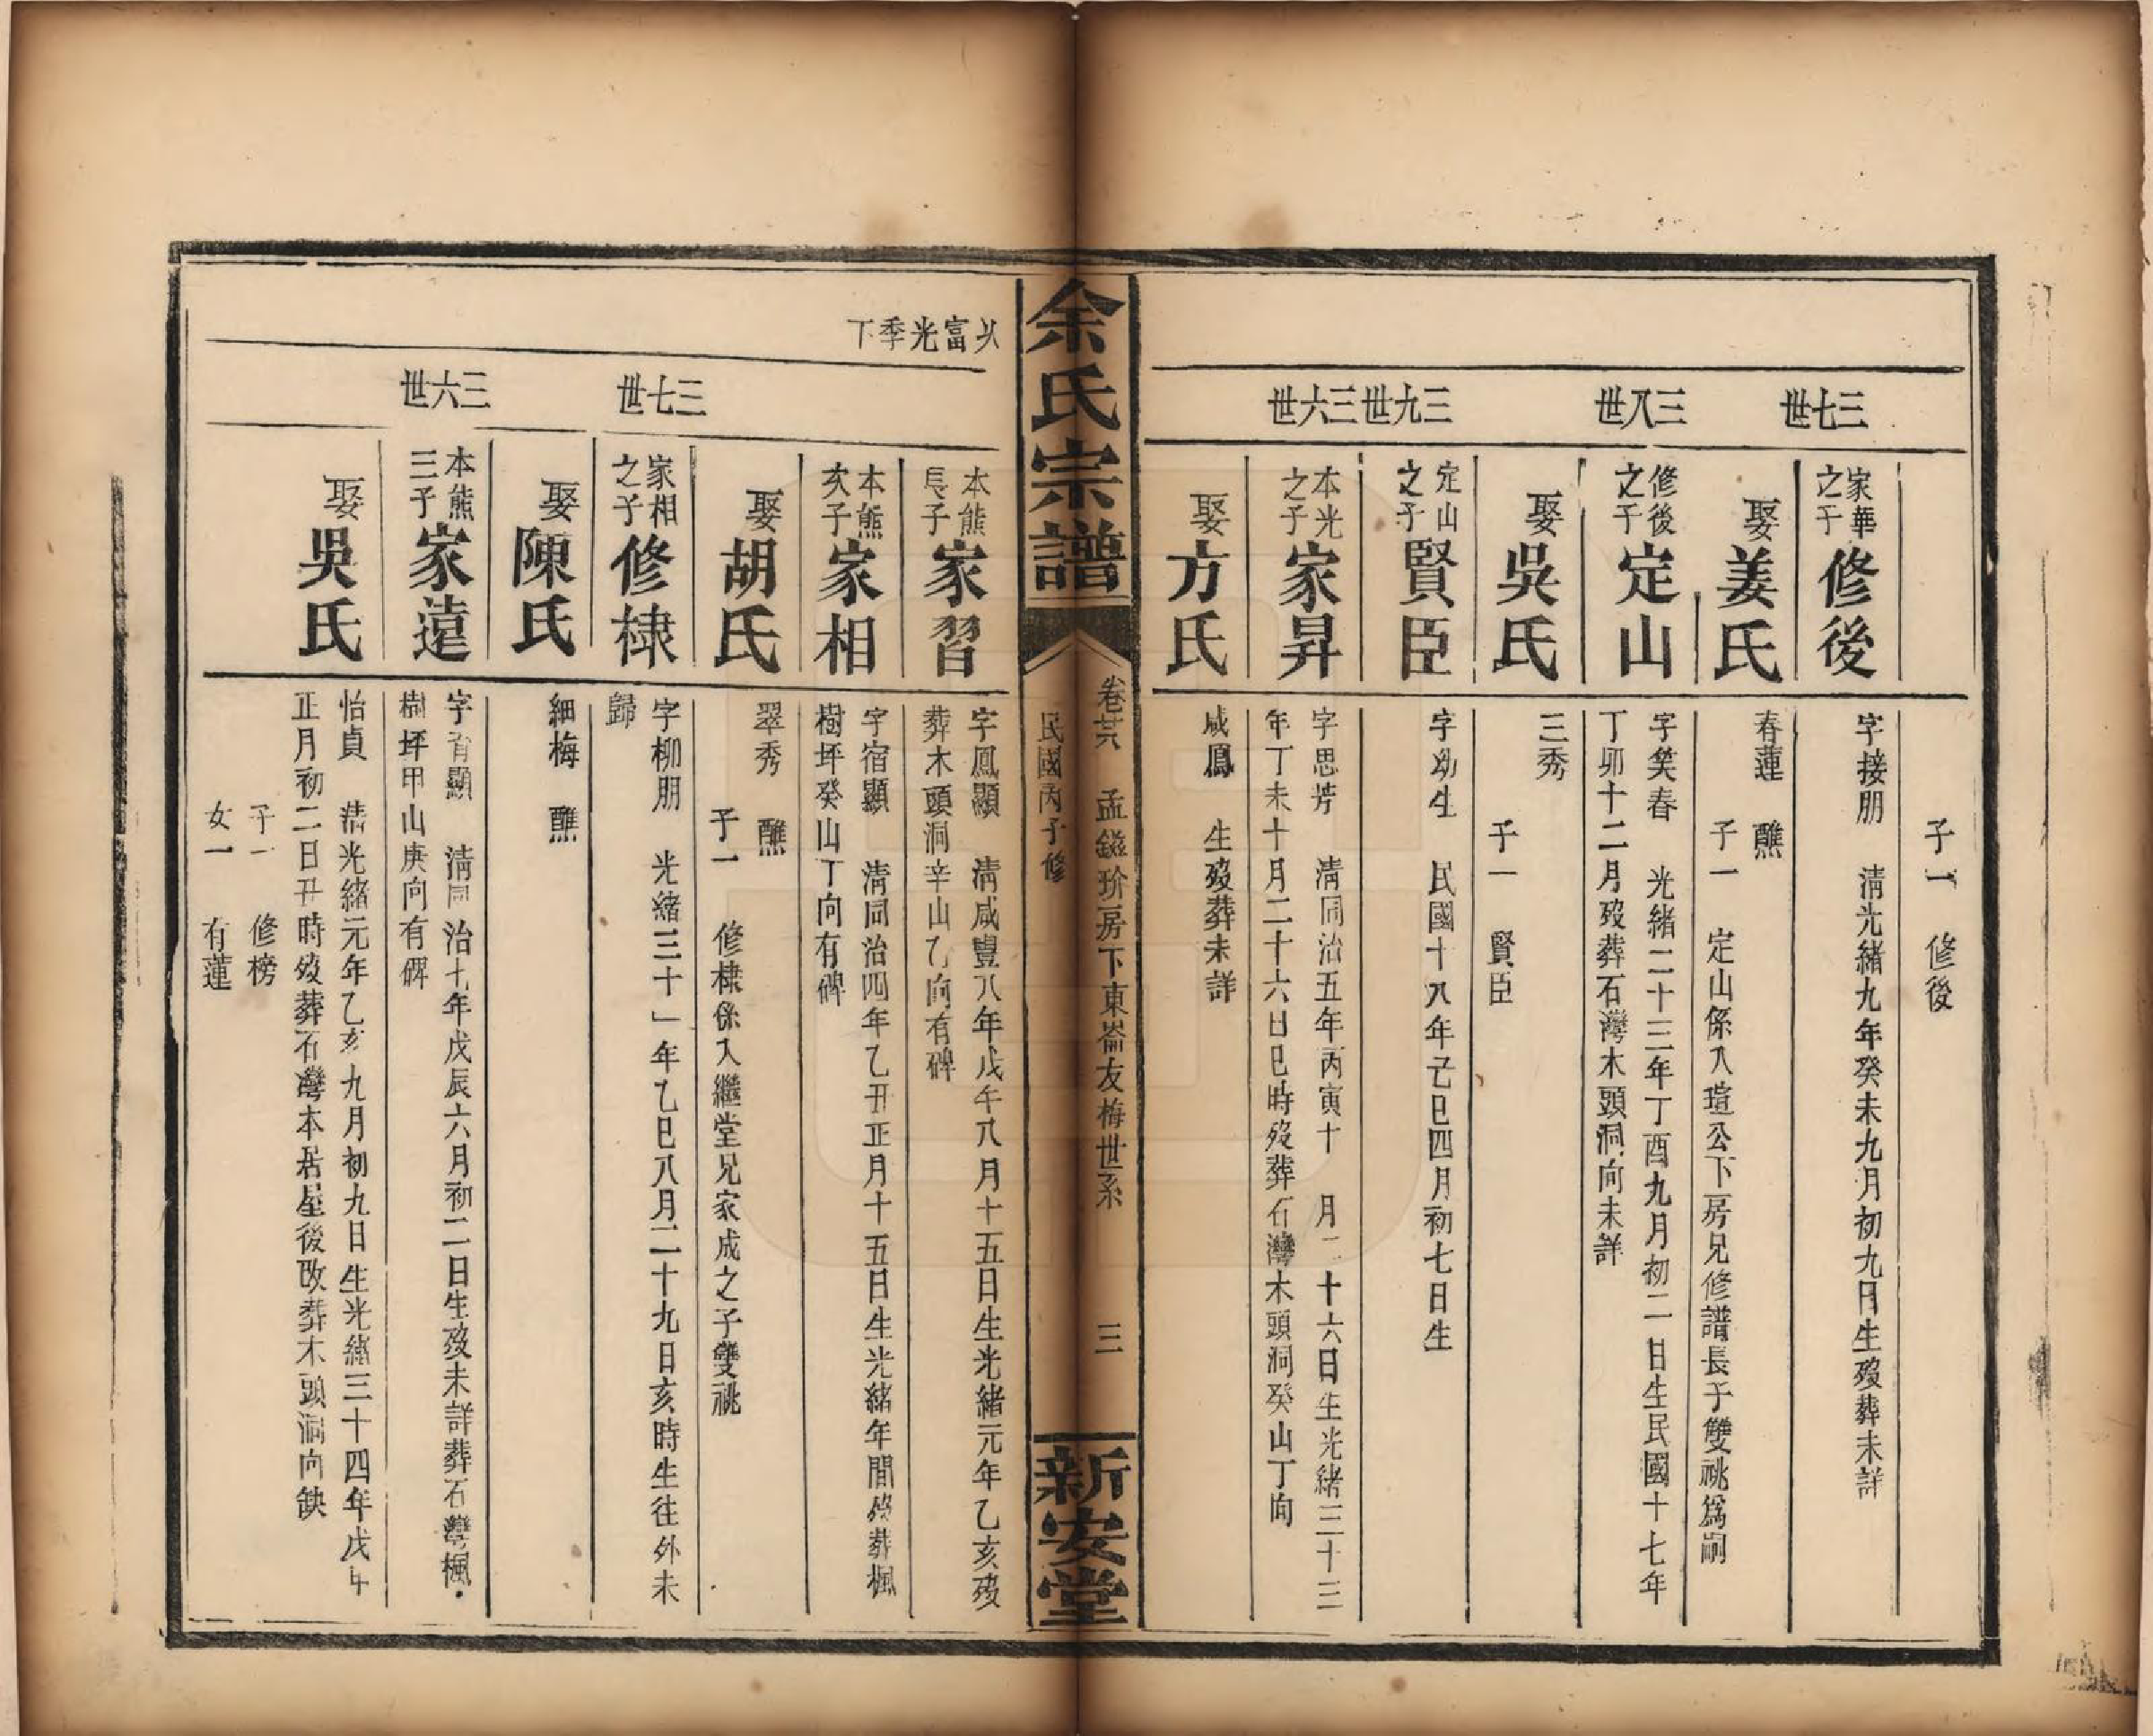 子一　修後
三七世
家華之子
修後
字接朋　清光緒九年癸未九月初九日生歿葬未詳
娶姜氏
春蓮　醮
子一　定山係入瑄公下房兄修譜長子雙祧爲嗣
三八世
修後之子
定山
字笑春　光緒二十三年丁酉九月初二日生民國十七年
丁卯十二月歿葬石灣木頭洞向未詳
娶吳氏
三秀
子一　賢臣
三九世
定山之子
賢臣
字幼生　民國十八年己巳四月初七日生
三六世
本光之子
家昇
字思芳　清同治五年丙寅十月二十六日生光緒三十三
年丁未十月二十六日巳時歿葬石灣木頭洞癸山丁向
娶方氏
咸鳳　生歿葬未詳
余氏宗譜
卷廿六　孟鎰玠房下東崙友梅世系　三
民國丙子修
新安堂
以富光季下
本熊長子
家習
字鳳顯　清咸豐八年戊午八月十五日生光緒元年乙亥歿
葬木頭洞辛山乙向有碑
本熊次子
家相
字宿顯　清同治四年乙丑正月十五日生光緒年間歿葬楓
樹坪癸山丁向有碑
娶胡氏
翠秀　醮
子一　修棣係入繼堂兄家成之子雙祧
三七世
家相之子
修棣
字柳朋　光緒三十一年乙巳八月二十九日亥時生往外未
歸
娶陳氏
細梅　醮
三六世
本熊三子
家遠
字肖顯　清同治七年戊辰六月初二日生歿未詳葬石灣楓
樹坪甲山庚向有碑
娶吳氏
怡貞　清光緒元年乙亥九月初九日生光緒三十四年戊午
正月初二日丑時歿葬石灣本居屋後改葬木頭洞向缺
子一　修榜
女一　有蓮